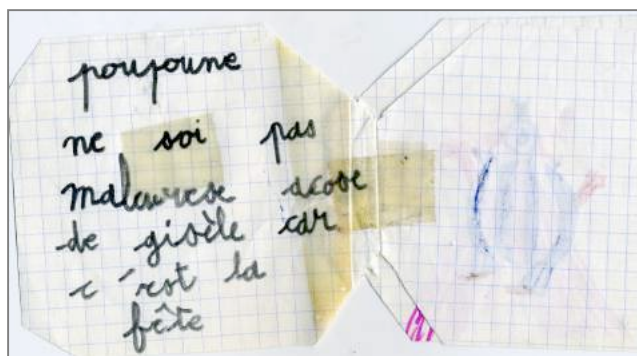 poupoune
ne soi pas
malaurese acose
de gisèle car
c'est la
fête